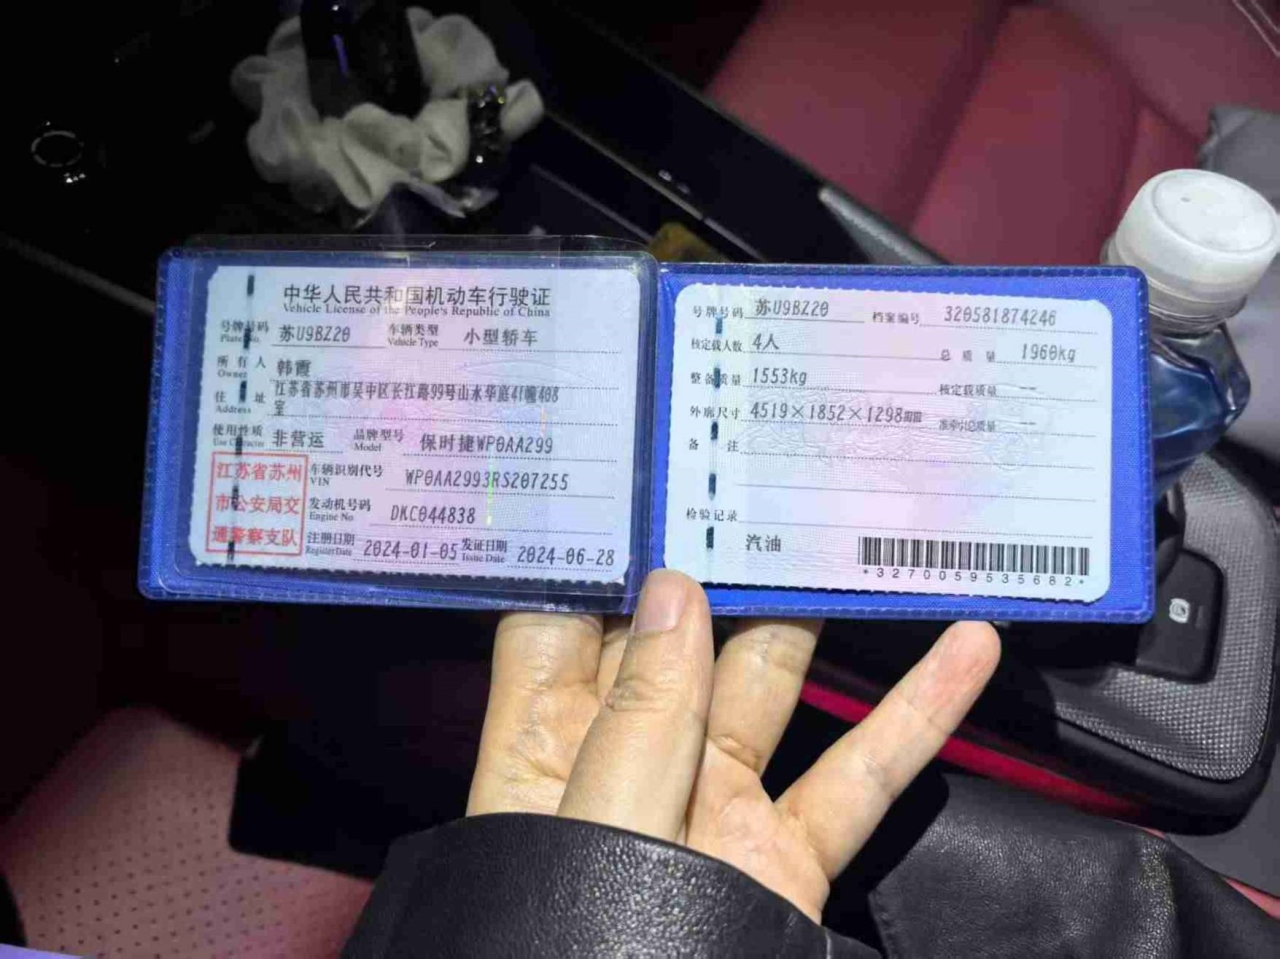 中华人民共和国机动车行驶证
Vehicle License of the People's Republic of China
号牌号码 苏U9BZ20 车辆类型 小型轿车
Plate No. Vehicle Type
所有人 韩霞
Owner
住址 江苏省苏州市吴中区长江路99号山水华庭41幢408
Address 室
使用性质 非营运 品牌型号 保时捷WP0AA299
Use Character Model
江苏省苏州
市公安局交
通警察支队
车辆识别代号 WP0AA2993RS207255
VIN
发动机号码 DKC044838
Engine No.
注册日期 2024-01-05 发证日期 2024-06-28
Register Date Issue Date
号牌号码 苏U9BZ20 档案编号 320581874246
核定载人数 4人 总质量 1960kg
整备质量 1553kg 核定载质量 --
外廓尺寸 4519×1852×1298mm 准牵引总质量 --
备注
检验记录
汽油
*3270059535682*